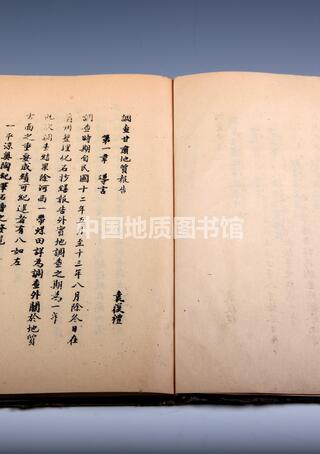 調查甘肅地質報告
袁復禮
第一章 導言
調查時期自民國十二年五月至十三年八月除冬日在
州整理化石抄繕報告外實地調查之期為一年
此次調查結果除河西一帶煤田詳為調查外關於地質
方面之重要成績可紀述者有八如左
一平涼奧陶紀筆石層之發見
中国地质图书馆